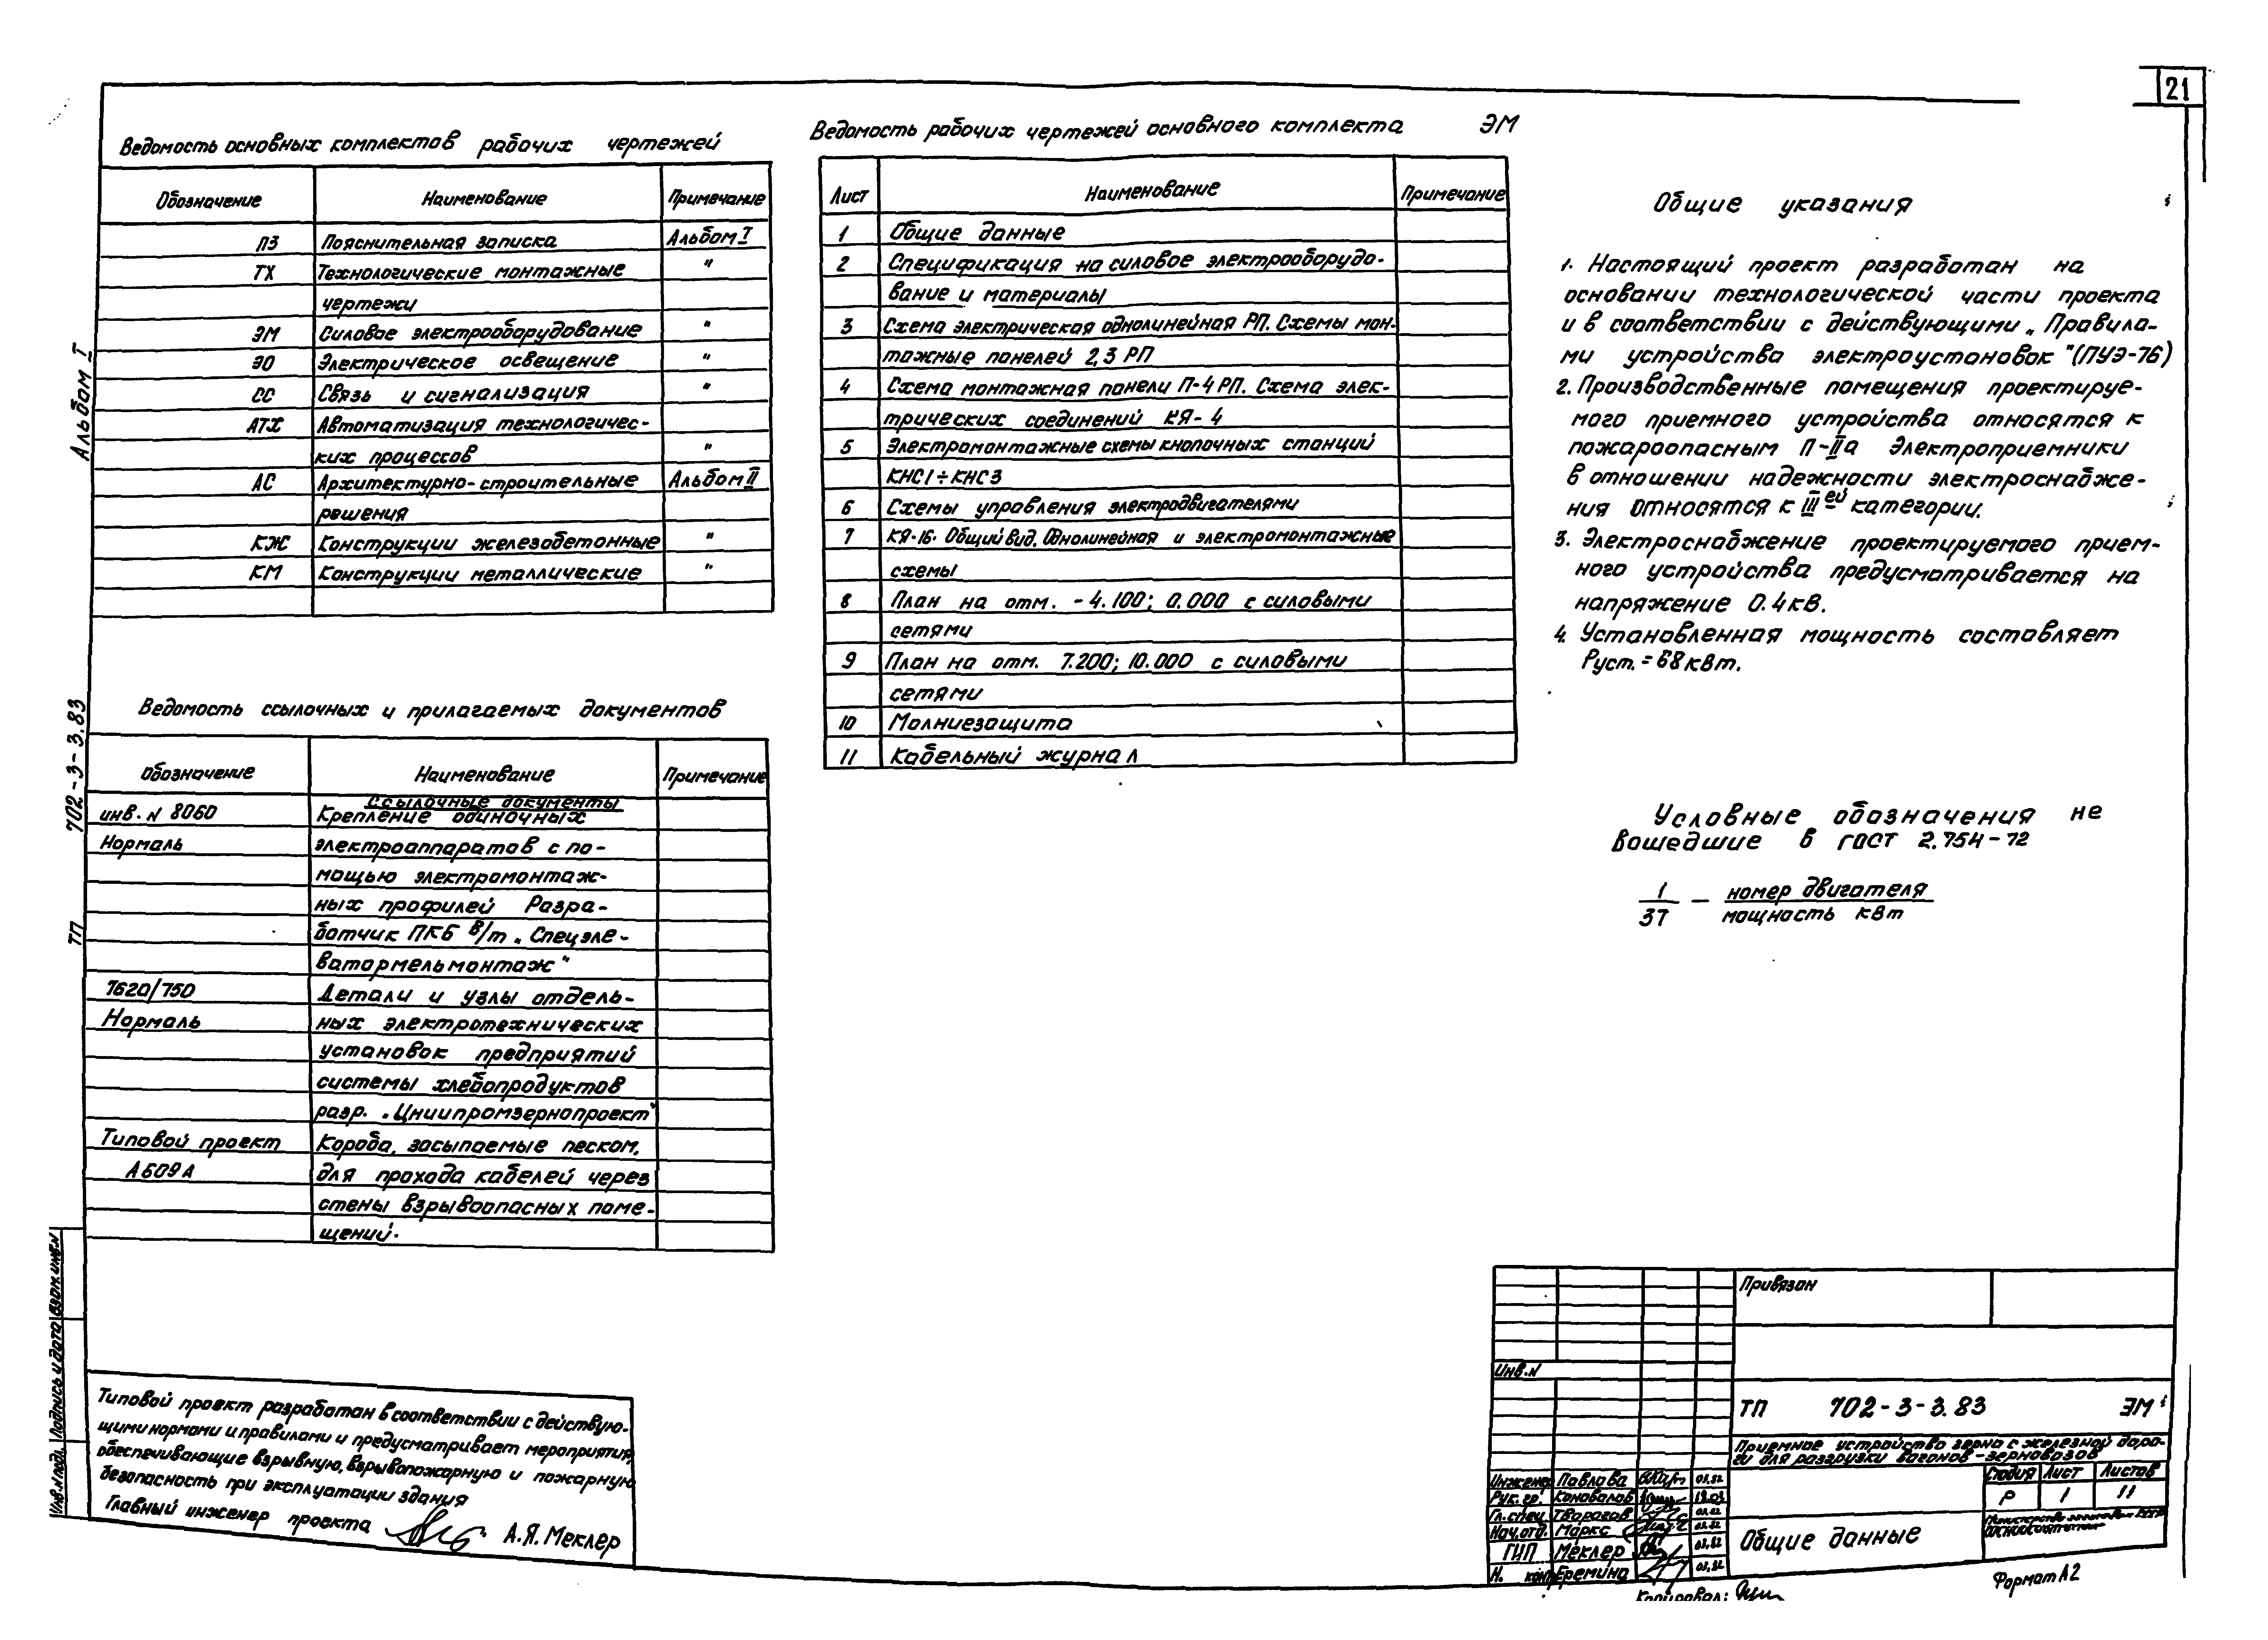 21
Ведомость основных комплектов рабочих чертежей
Обозначение Наименование Примечание
ПЗ Пояснительная записка Альбом I
ТХ Технологические монтажные "
чертежи
ЭМ Силовое электрооборудование "
ЭО Электрическое освещение "
СС Связь и сигнализация "
АТХ Автоматизация технологичес-
ких процессов "
АС Архитектурно-строительные Альбом II
решения
КЖ Конструкции железобетонные "
КМ Конструкции металлические "
Ведомость ссылочных и прилагаемых документов
Обозначение Наименование Примечание
Ссылочные документы
инв. N 8060 Крепление одиночных
Нормаль электроаппаратов с по-
мощью электромонтаж-
ных профилей Разра-
ботчик ПКБ В/т „Спецэле-
ватормельмонтаж"
7620/750 Детали и узлы отдель-
Нормаль ных электротехнических
установок предприятий
системы хлебопродуктов
разр. „Цниипромзернопроект"
Типовой проект Короба, засыпаемые песком,
А609А для прохода кабелей через
стены взрывоопасных поме-
щений.
Ведомость рабочих чертежей основного комплекта ЭМ
Лист Наименование Примечание
1 Общие данные
2 Спецификация на силовое электрооборудо-
вание и материалы
3 Схема электрическая однолинейная РП. Схемы мон-
тажные панелей 2,3 РП
4 Схема монтажная панели П-4 РП. Схема элек-
трических соединений КЯ-4
5 Электромонтажные схемы кнопочных станций
КНС1÷КНС3
6 Схемы управления электродвигателями
7 КЯ-16. Общий вид. Однолинейная и электромонтажные
схемы
8 План на отм. -4.100; 0.000 с силовыми
сетями
9 План на отм. 7.200; 10.000 с силовыми
сетями
10 Молниезащита
11 Кабельный журнал
Общие указания
1. Настоящий проект разработан на
основании технологической части проекта
и в соответствии с действующими „Правила-
ми устройства электроустановок"(ПУЭ-76)
2. Производственные помещения проектируе-
мого приемного устройства относятся к
пожароопасным П-IIа Электроприемники
в отношении надежности электроснабже-
ния относятся к III ей категории.
3. Электроснабжение проектируемого прием-
ного устройства предусматривается на
напряжение 0.4кВ.
4. Установленная мощность составляет
Руст. = 68кВт.
Условные обозначения не
вошедшие в ГОСТ 2.754-72
1 — номер двигателя
37 мощность кВт
Альбом I
702-3-3.83
ТП
Инв.N подл. Подпись и дата Взам.инв.N
Типовой проект разработан в соответствии с действую-
щими нормами и правилами и предусматривает мероприятия,
обеспечивающие взрывную, взрывопожарную и пожарную
безопасность при эксплуатации здания
Главный инженер проекта А.Я. Меклер
Привязан
Инв.N
ТП 702-3-3.83 ЭМ
Приемное устройство зерна с железной доро-
ги для разгрузки вагонов-зерновозов
Стадия Лист Листов
Р 1 11
Инженер Павлова 03.82
Рук.гр. Коновалов
Гл.спец Тварогов 03.82
Нач.отд. Маркс 03.82
ГИП Меклер 03.82
Н. конт Еремина 03.82
Общие данные
Копировал:
Формат А2